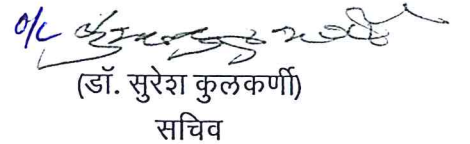 o/c
(डॉ. सुरेश कुलकर्णी)
सचिव